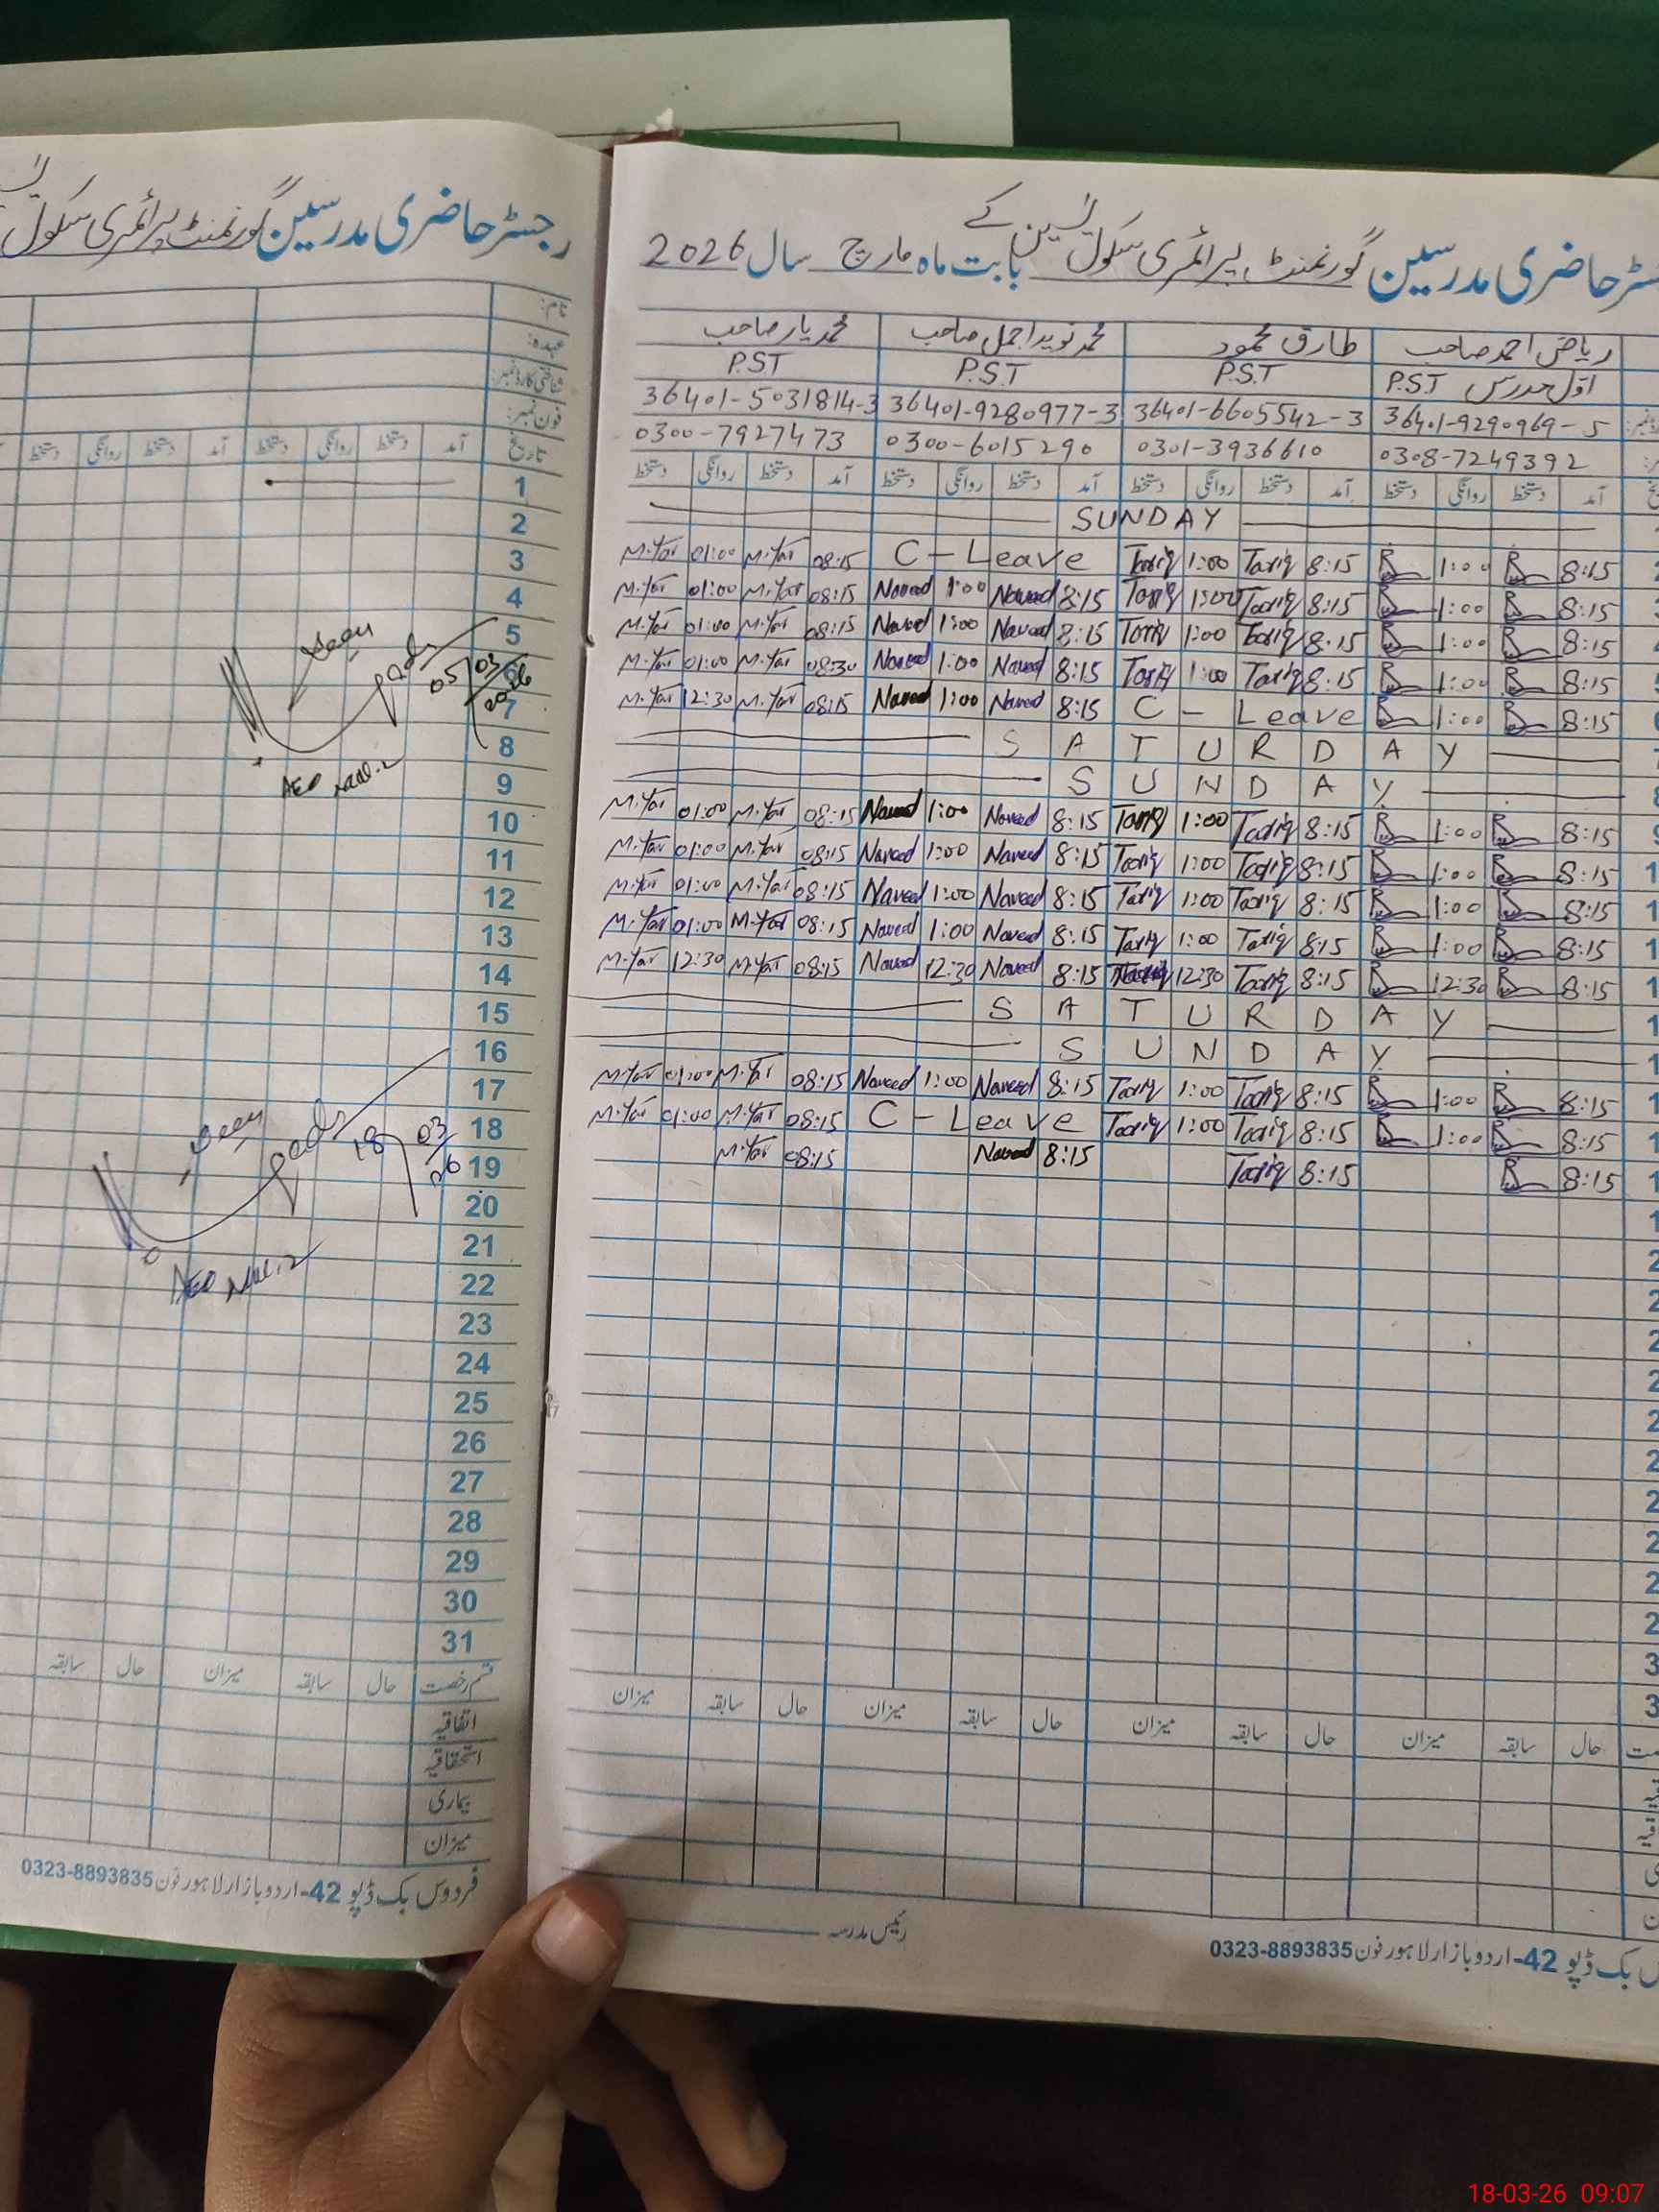 رجسٹر حاضری مدرسین گورنمنٹ پرائمری سکول
نام:
عہدہ:
شناختی کارڈ نمبر:
فون نمبر:
تاریخ آمد دستخط روانگی دستخط آمد دستخط روانگی دستخط
1
2
3
4
5
6
7
8
9
10
11
12
13
14
15
16
17
18
19
20
21
22
23
24
25
26
27
28
29
30
31
Seen
05/03/2026
AEO
Seen
18/03/26
AEO
قسم رخصت حال سابقہ میزان حال سابقہ
اتفاقیہ
استحقاقیہ
بیماری
میزان
فردوس بک ڈپو 42-اردو بازار لاہور فون 0323-8893835
حاضری مدرسین گورنمنٹ پرائمری سکول یٰسین کے بابت ماہ مارچ سال 2026
ریاض احمد صاحب طارق محمود محمد نوید اجمل صاحب محمد یار صاحب
اول مدرس P.S.T P.S.T P.S.T P.S.T
36401-9290969-5 36401-6605542-3 36401-9280977-3 36401-5031814-3
0308-7249392 0301-3936610 0300-6015290 0300-7927473
آمد دستخط روانگی دستخط آمد دستخط روانگی دستخط آمد دستخط روانگی دستخط آمد دستخط روانگی دستخط
SUNDAY
M.Yar 01:00 M.Yar 08:15 C-Leave Tariq 1:00 Tariq 8:15 1:00 8:15
M.Yar 01:00 M.Yar 08:15 Naveed 1:00 Naveed 8:15 Tariq 1:00 Tariq 8:15 1:00 8:15
M.Yar 01:00 M.Yar 08:15 Naveed 1:00 Naveed 8:15 Tariq 1:00 Tariq 8:15 1:00 8:15
M.Yar 01:00 M.Yar 08:30 Naveed 1:00 Naveed 8:15 Tariq 1:00 Tariq 8:15 1:00 8:15
M.Yar 12:30 M.Yar 08:15 Naveed 1:00 Naveed 8:15 C - Leave 1:00 8:15
SATURDAY
SUNDAY
M.Yar 01:00 M.Yar 08:15 Naveed 1:00 Naveed 8:15 Tariq 1:00 Tariq 8:15 1:00 8:15
M.Yar 01:00 M.Yar 08:15 Naveed 1:00 Naveed 8:15 Tariq 1:00 Tariq 8:15 1:00 8:15
M.Yar 01:00 M.Yar 08:15 Naveed 1:00 Naveed 8:15 Tariq 1:00 Tariq 8:15 1:00 8:15
M.Yar 01:00 M.Yar 08:15 Naveed 1:00 Naveed 8:15 Tariq 1:00 Tariq 8:15 1:00 8:15
M.Yar 12:30 M.Yar 08:15 Naveed 12:30 Naveed 8:15 12:30 Tariq 8:15 12:30 8:15
SATURDAY
SUNDAY
M.Yar 01:00 M.Yar 08:15 Naveed 1:00 Naveed 8:15 Tariq 1:00 Tariq 8:15 1:00 8:15
M.Yar 01:00 M.Yar 08:15 C-Leave Tariq 1:00 Tariq 8:15 1:00 8:15
M.Yar 08:15 Naveed 8:15 Tariq 8:15 8:15
حال سابقہ میزان حال سابقہ میزان حال سابقہ میزان حال سابقہ میزان
رئیس مدرسہ
بک ڈپو 42-اردو بازار لاہور فون 0323-8893835
18-03-26 09:07